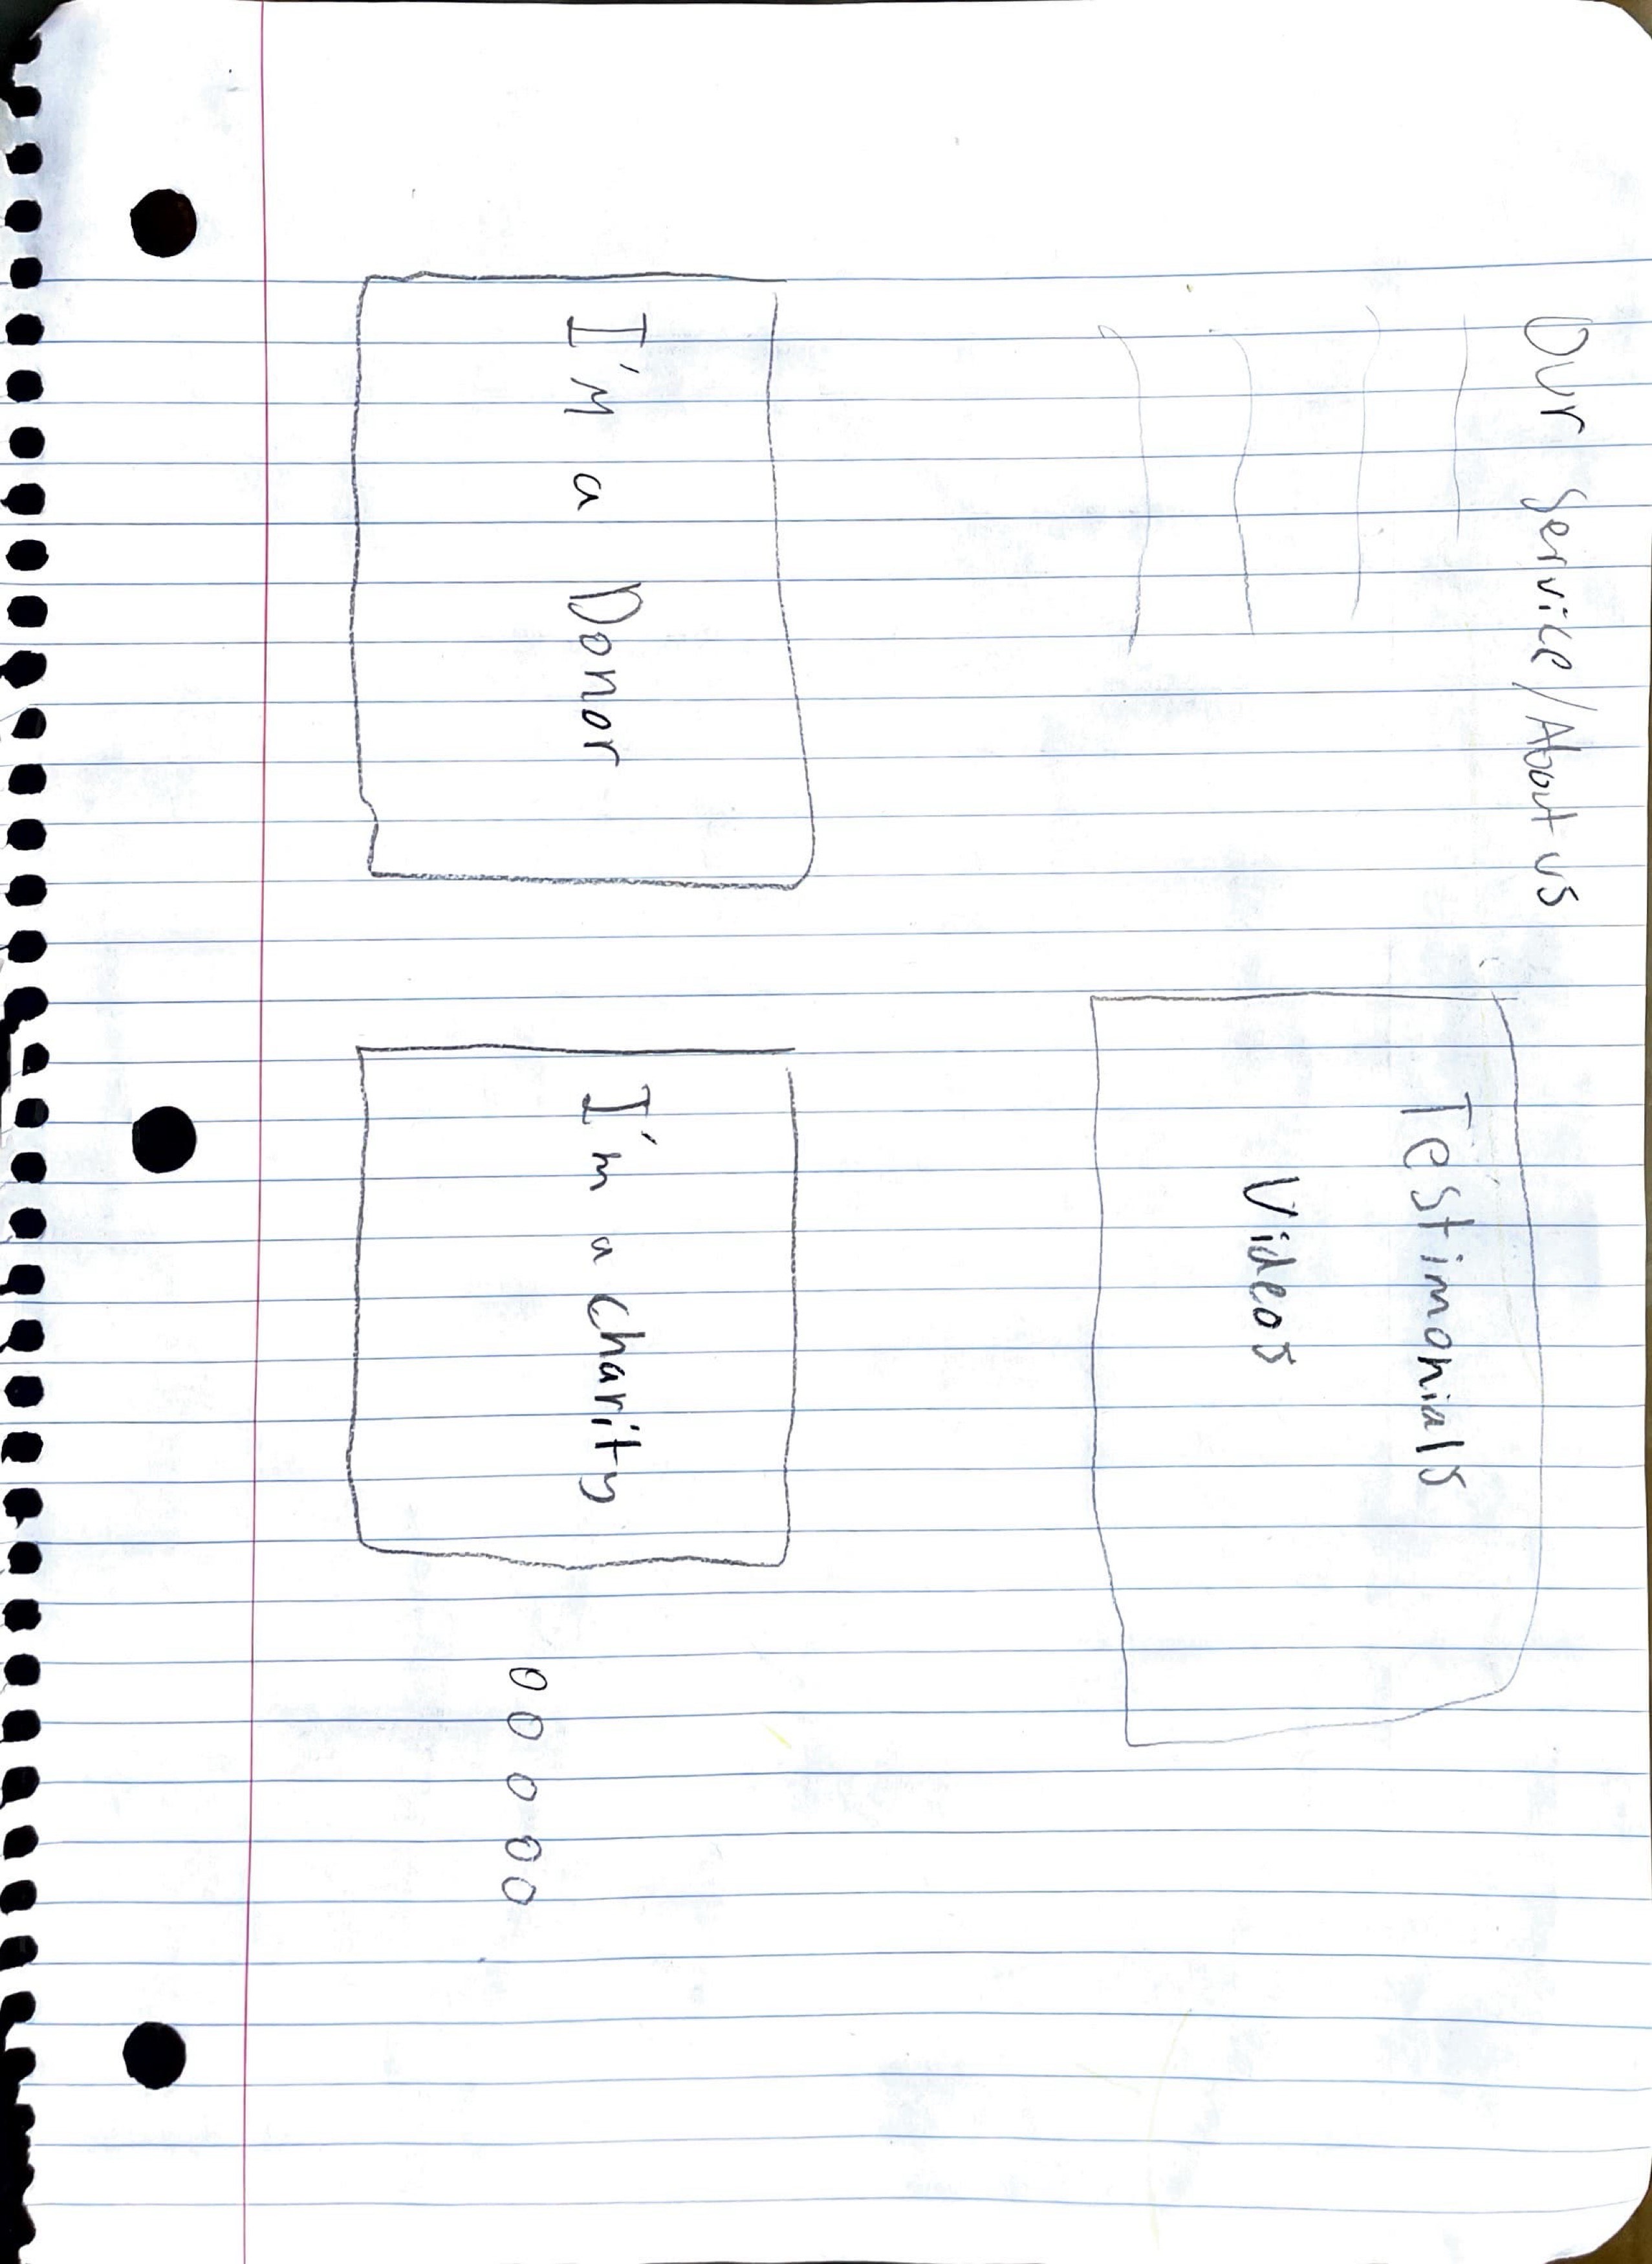 Our Service/About us
Testimonials
Videos
I'm a Donor
I'm a charity
0 0 0 0 0